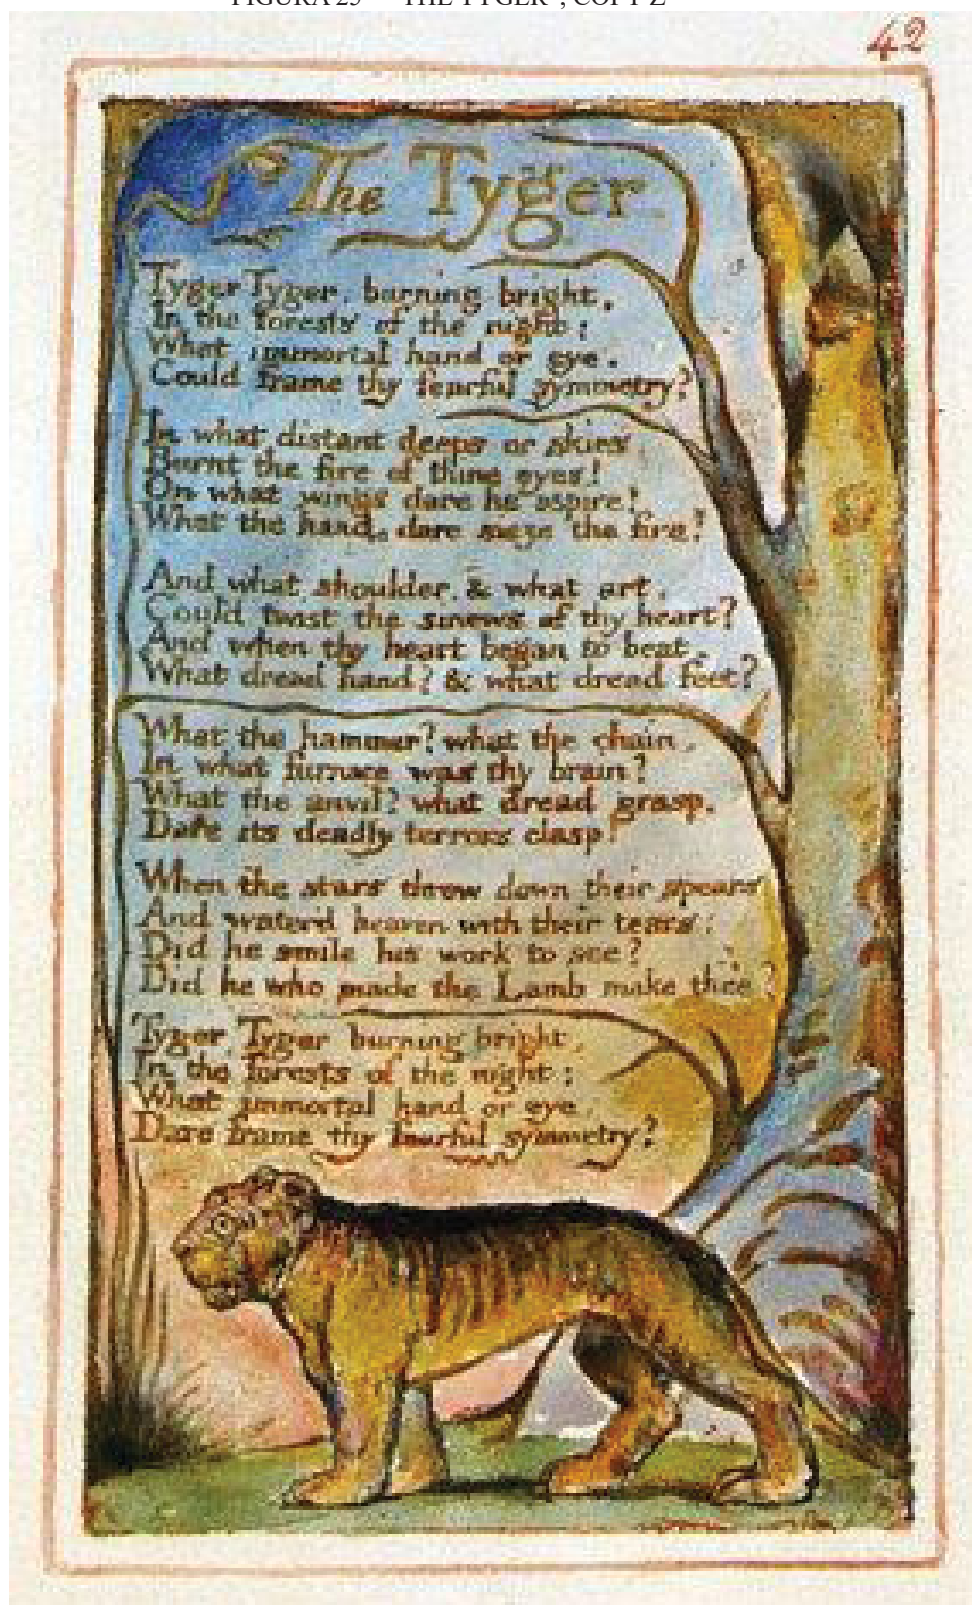 FIGURA 25 – "THE TYGER", COPY Z
42
The Tyger
Tyger Tyger, burning bright,
In the forests of the night;
What immortal hand or eye,
Could frame thy fearful symmetry?
In what distant deeps or skies
Burnt the fire of thine eyes!
On what wings dare he aspire!
What the hand, dare sieze the fire?
And what shoulder, & what art,
Could twist the sinews of thy heart?
And when thy heart began to beat,
What dread hand? & what dread feet?
What the hammer? what the chain,
In what furnace was thy brain?
What the anvil? what dread grasp,
Dare its deadly terrors clasp!
When the stars threw down their spears
And water'd heaven with their tears:
Did he smile his work to see?
Did he who made the Lamb make thee?
Tyger Tyger burning bright,
In the forests of the night;
What immortal hand or eye,
Dare frame thy fearful symmetry?